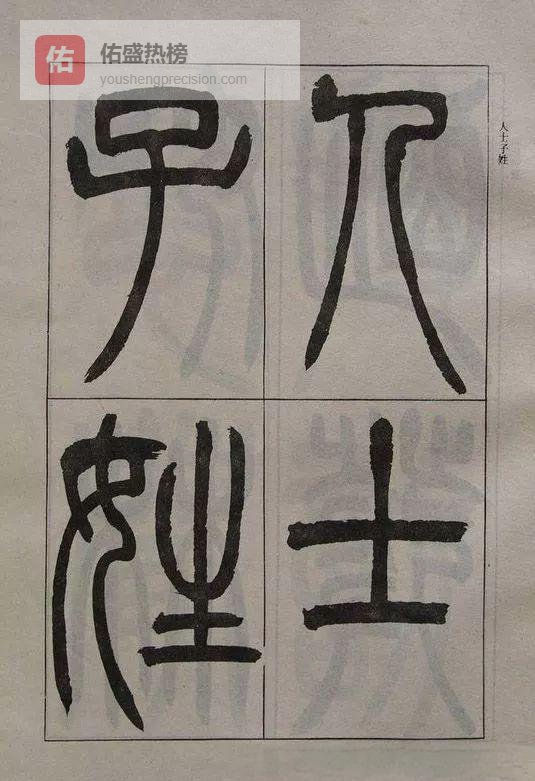 佑 佑盛热榜
youshengprecision.com
人士子姓
人士
子姓